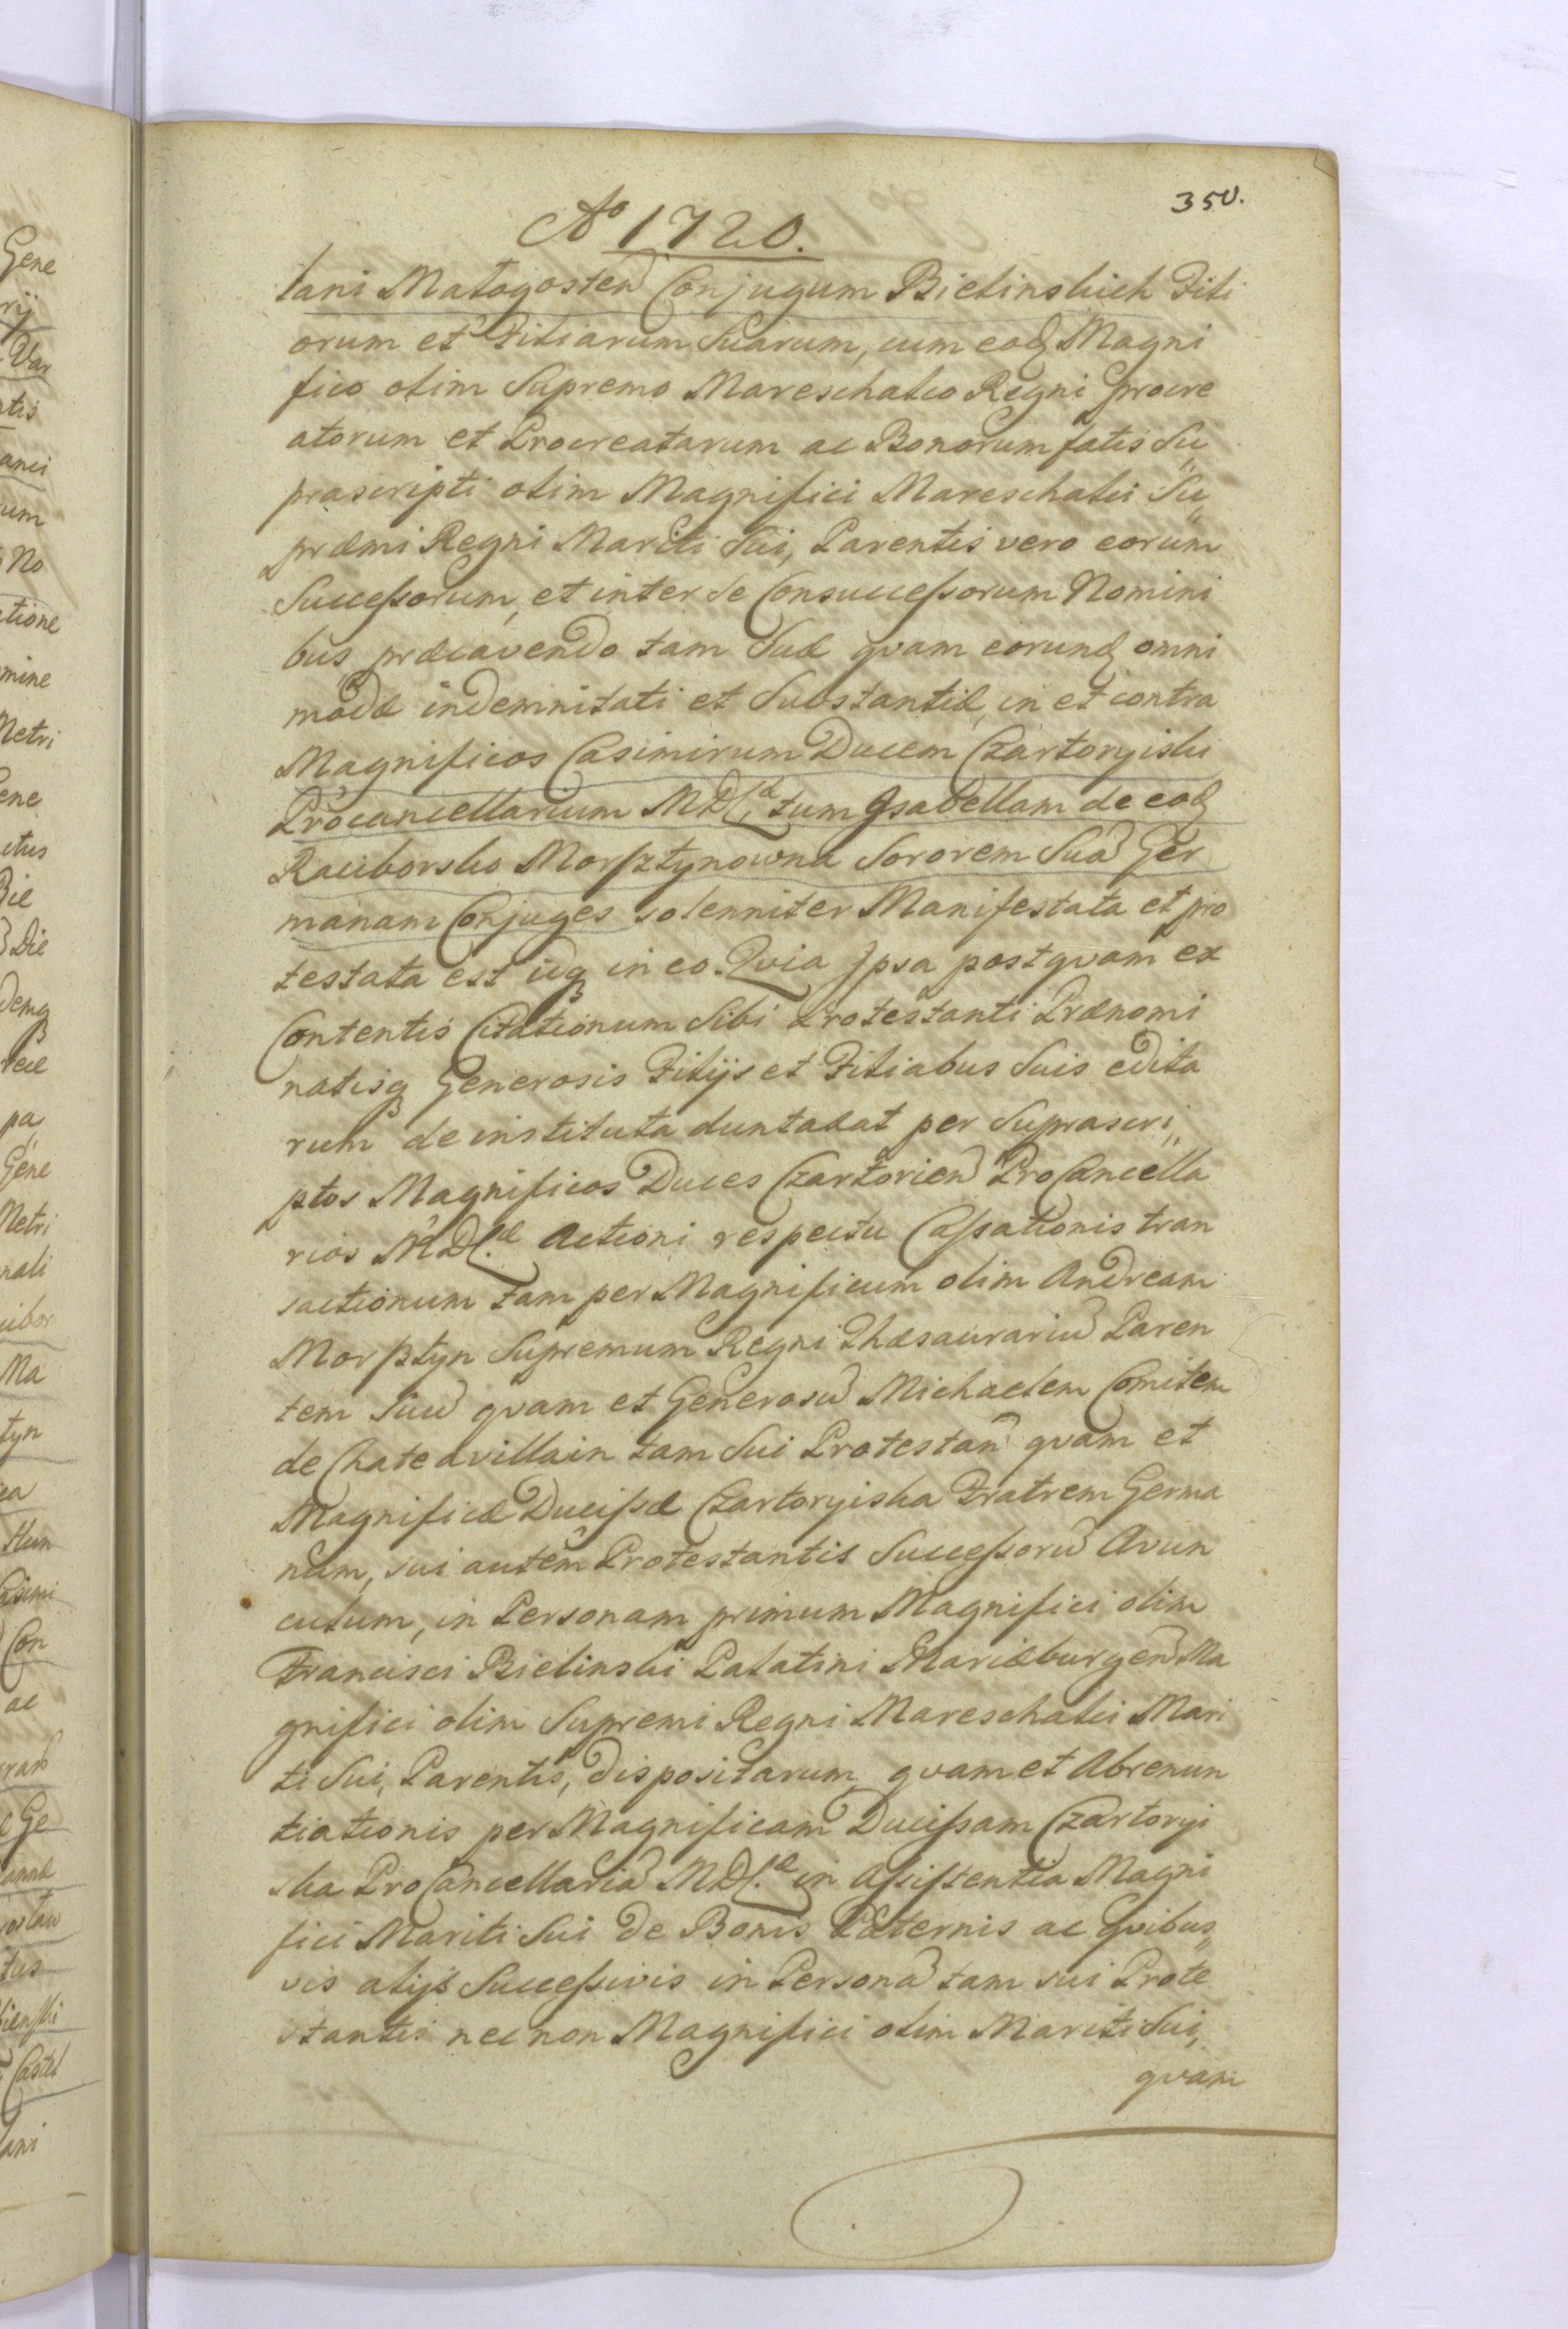 350.
Ao 1720.
lani Małogosten Conjugum Bielinskich Fili
orum et Filiarum Suarum, cum eodq Magni
fico olim Supremo Mareschalco Regni procre
atorum et Procreatarum ac Bonorum fatis Su„
prascripti olim Magnifici Mareschalci Su„
præmi Regni Mariti Sui, Parentis vero eorum
Successorum, et inter se Consuccessorum Nomini
bus præcavendo tam Suæ qvam eorundq omni
modæ indemnitati et Substantiæ, in et contra
Magnificos Casimirum Ducem Czartoryiski
Procancellarium MDLæ tum Isabellam de eodq
Raciborsko Morsztynowna Sororem Sua Ger
manam Conjuges solenniter Manifestata et pro
testata est idq in eo. Qvia Ipsa postqvam ex
Contentis Citationum Sibi Protestanti Prænomi
natisq Generosis Filijs et Filiabus Suis edita
rum de instituta duntaxat per Suprascri„
ptos Magnificos Duces Czartorien ProCancella
rios MDLæ Actioni respectu Cassationis tran
sactionum tam per Magnificum olim Andream
Morsztyn Supremum Regni Thæsaurariu Paren
tem Suu qvam et Generosu Michaelem Comitem
de Chateavillain tam Sui Protestan qvam et
Magnificæ Ducissæ Czartoryiska Fratrem Germa
num, sui autem Protestantis Successoru Avun
culum, in Personam primum Magnifici olim
Francisci Bielinski Palatini Mariæburgen Ma
gnifici olim Supremi Regni Mareschalci Mari
ti Sui, Parentis, dispositarum, qvam et Abrenun
tiationis per Magnificam Ducissam Czartoryi
ska ProCancellaria MDLæ in Assistentia Magni
fici Mariti Sui de Bonis Paternis ac qvibus„
vis alijs Successivis in Persona tam sui Prote
stantis nec non Magnifici olim Mariti Sui,
qvam